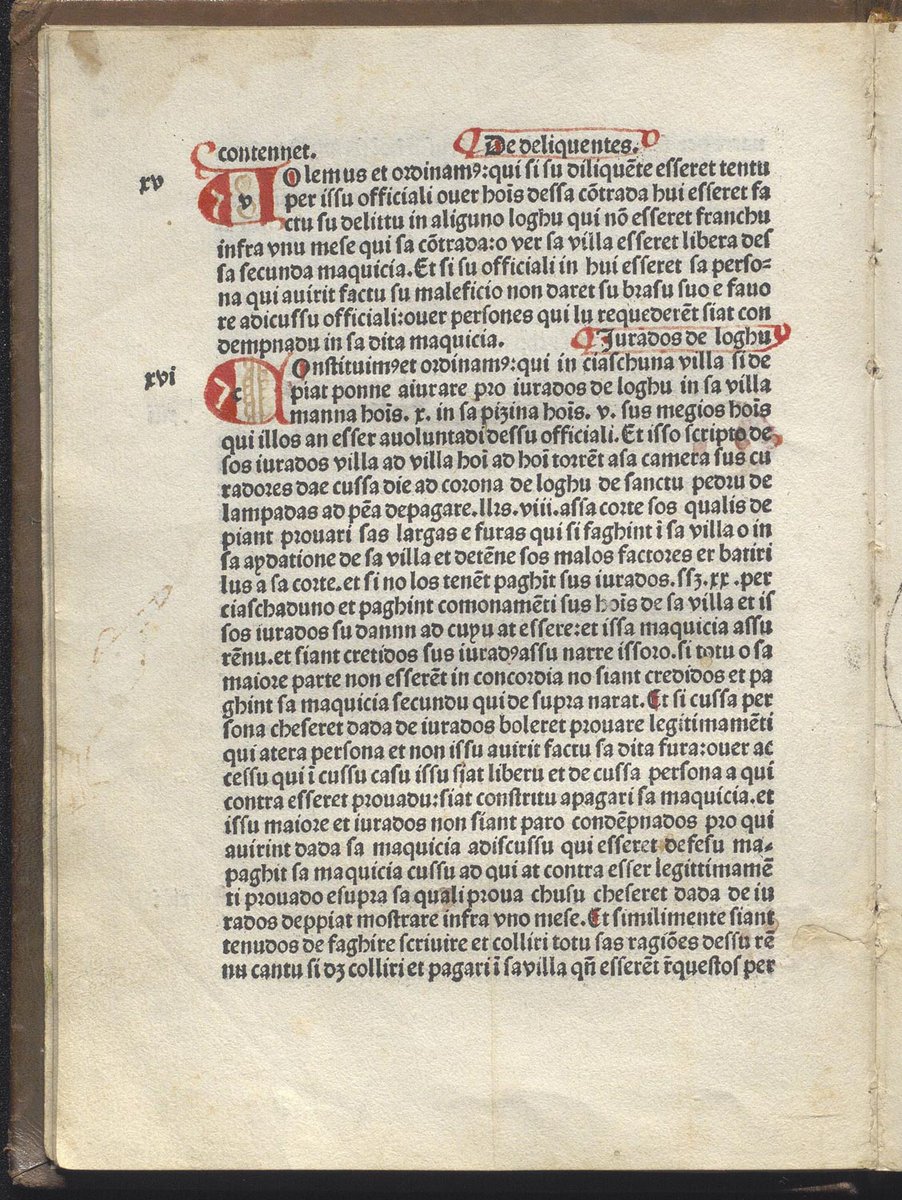 contennet. De deliquentes.
xv
Volemus et ordinamꝰ:qui si su diliquēte esseret tentu
per issu officiali ouer hoīs dessa cōtrada hui esseret fa
ctu su delittu in aliguno loghu qui nō esseret franchu
infra vnu mese qui sa cōtrada:o ver sa villa esseret libera des
sa secunda maquicia.Et si su officiali in hui esseret sa perso-
na qui auirit factu su maleficio non daret su brasu suo e fauo
re adicussu officiali:ouer persones qui lu requederēt siat con
dempnadu in sa dita maquicia. Jurados de loghu
xvi
Constituimꝰet ordinamꝰ:qui in ciaschuna villa si de
piat ponne aiurare pro iurados de loghu in sa villa
manna hoīs. x. in sa pizina hoīs. v. sus megios hoīs
qui illos an esser auoluntadi dessu officiali.Et isso scripto de
sos iurados villa ad villa hoī ad hoī torrēt asa camera sus cu
radores dae cussa die ad corona de loghu de sanctu pedru de
lampadas ad pēa depagare.llrs.viii.assa corte sos qualis de
piant prouari sas largas e furas qui si faghint ī sa villa o in
sa aydatione de sa villa et detēne sos malos factores er batiri
lus a sa corte.et si no los tenēt paghīt sus iurados.ssꝫ.xx.per
ciaschaduno et paghint comonamēti sus hoīs de sa villa et is
sos iurados su dannn ad cuyu at essere:et issa maquicia assu
rēnu.et siant cretidos sus iuradꝰassu narre issoro.si totu o sa
maiore parte non esserēt in concordia no siant credidos et pa
ghint sa maquicia secundu qui de supra narat.Et si cussa per
sona cheseret dada de iurados boleret prouare legitimamēti
qui atera persona et non issu auirit factu sa dita fura:ouer ac
cessu qui ī cussu casu issu siat liberu et de cussa persona a qui
contra esseret prouadu:siat constritu apagari sa maquicia.et
issu maiore et iurados non siant paro condēpnados pro qui
auirint dada sa maquicia adiscussu qui esseret defesu ma-
paghit sa maquicia cussu ad qui at contra esser legittimamē
ti prouado esupra sa quali proua chusu cheseret dada de iu
rados deppiat mostrare infra vno mese.Et similimente siant
tenudos de faghire scriuire et colliri totu sas ragiōes dessu rē
nu cantu si dꝫ colliri et pagari ī sa villa qñ esserēt r̄questos per